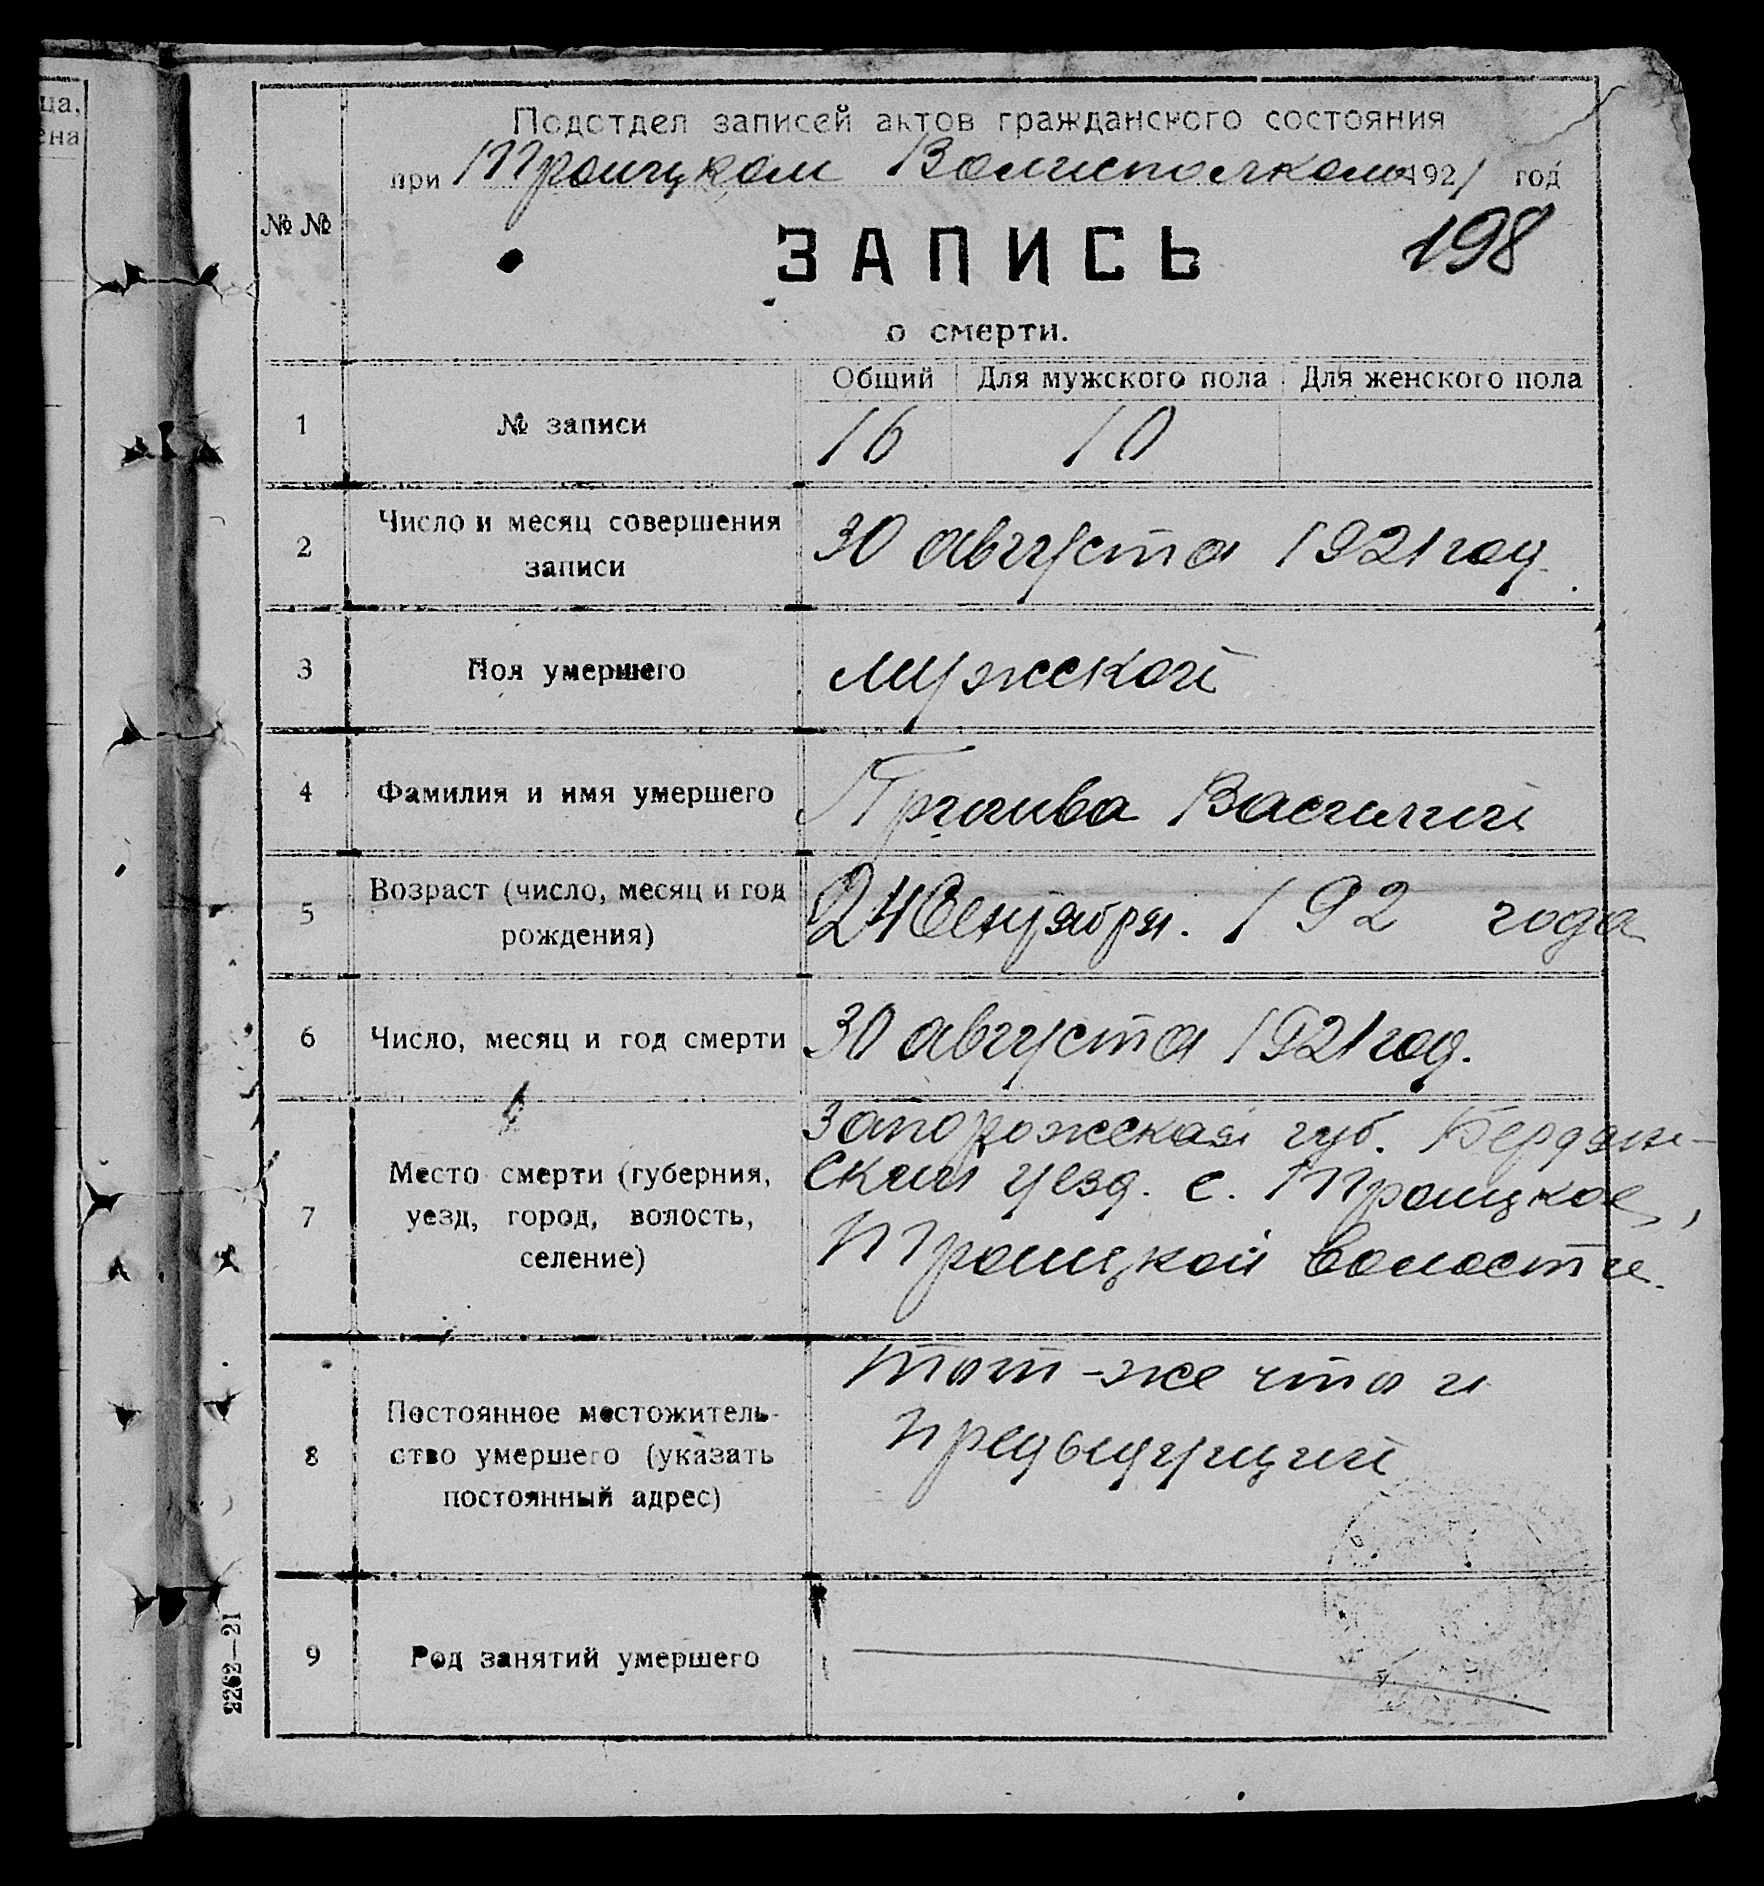 ца,
ена
Подотдел записей актов гражданского состояния
при Троицком Волисполкоме 1921 год
№ №
198
ЗАПИСЬ
о смерти.
Общий Для мужского пола Для женского пола
1 № записи 16 10
2 Число и месяц совершения
записи
30 августа 1921 год.
3 Пол умершего мужской
4 Фамилия и имя умершего Василий
5 Возраст (число, месяц и год
рождения)
24 Сентября. 192 года
6 Число, месяц и год смерти 30 августа 1921 год.
7 Место смерти (губерния,
уезд, город, волость,
селение)
Запорожская губ. Бердян-
ский уезд. с. Троицкое,
Троицкой волости.
8 Постоянное местожитель-
ство умершего (указать
постоянный адрес)
тот-же что и
предыдущий
9 Род занятий умершего
2262—21